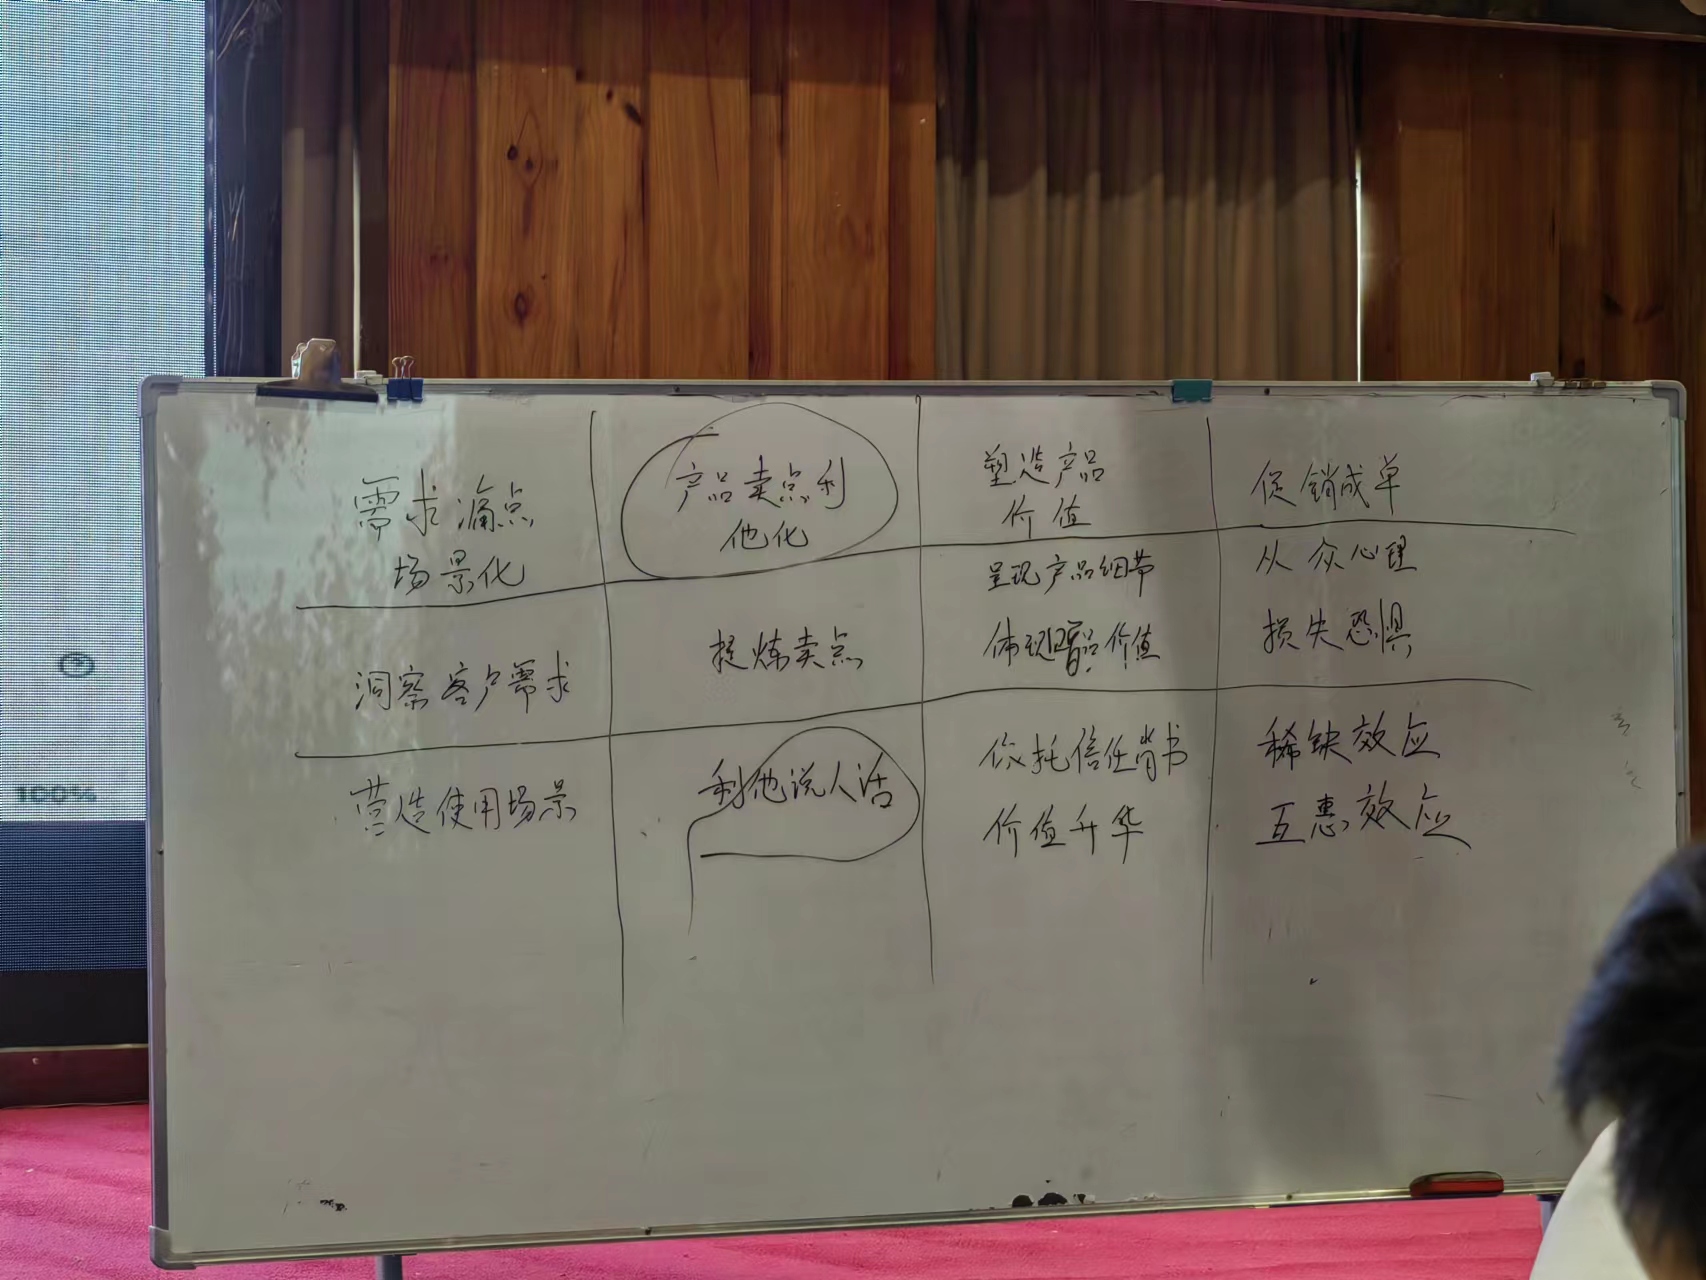 需求痛点
场景化
产品卖点利
他化
塑造产品
价值
促销成单
洞察客户需求
提炼卖点
呈现产品细节
体现产品价值
从众心理
损失恐惧
营造使用场景
利他说人话
依托信任背书
价值升华
稀缺效应
互惠效应
100%